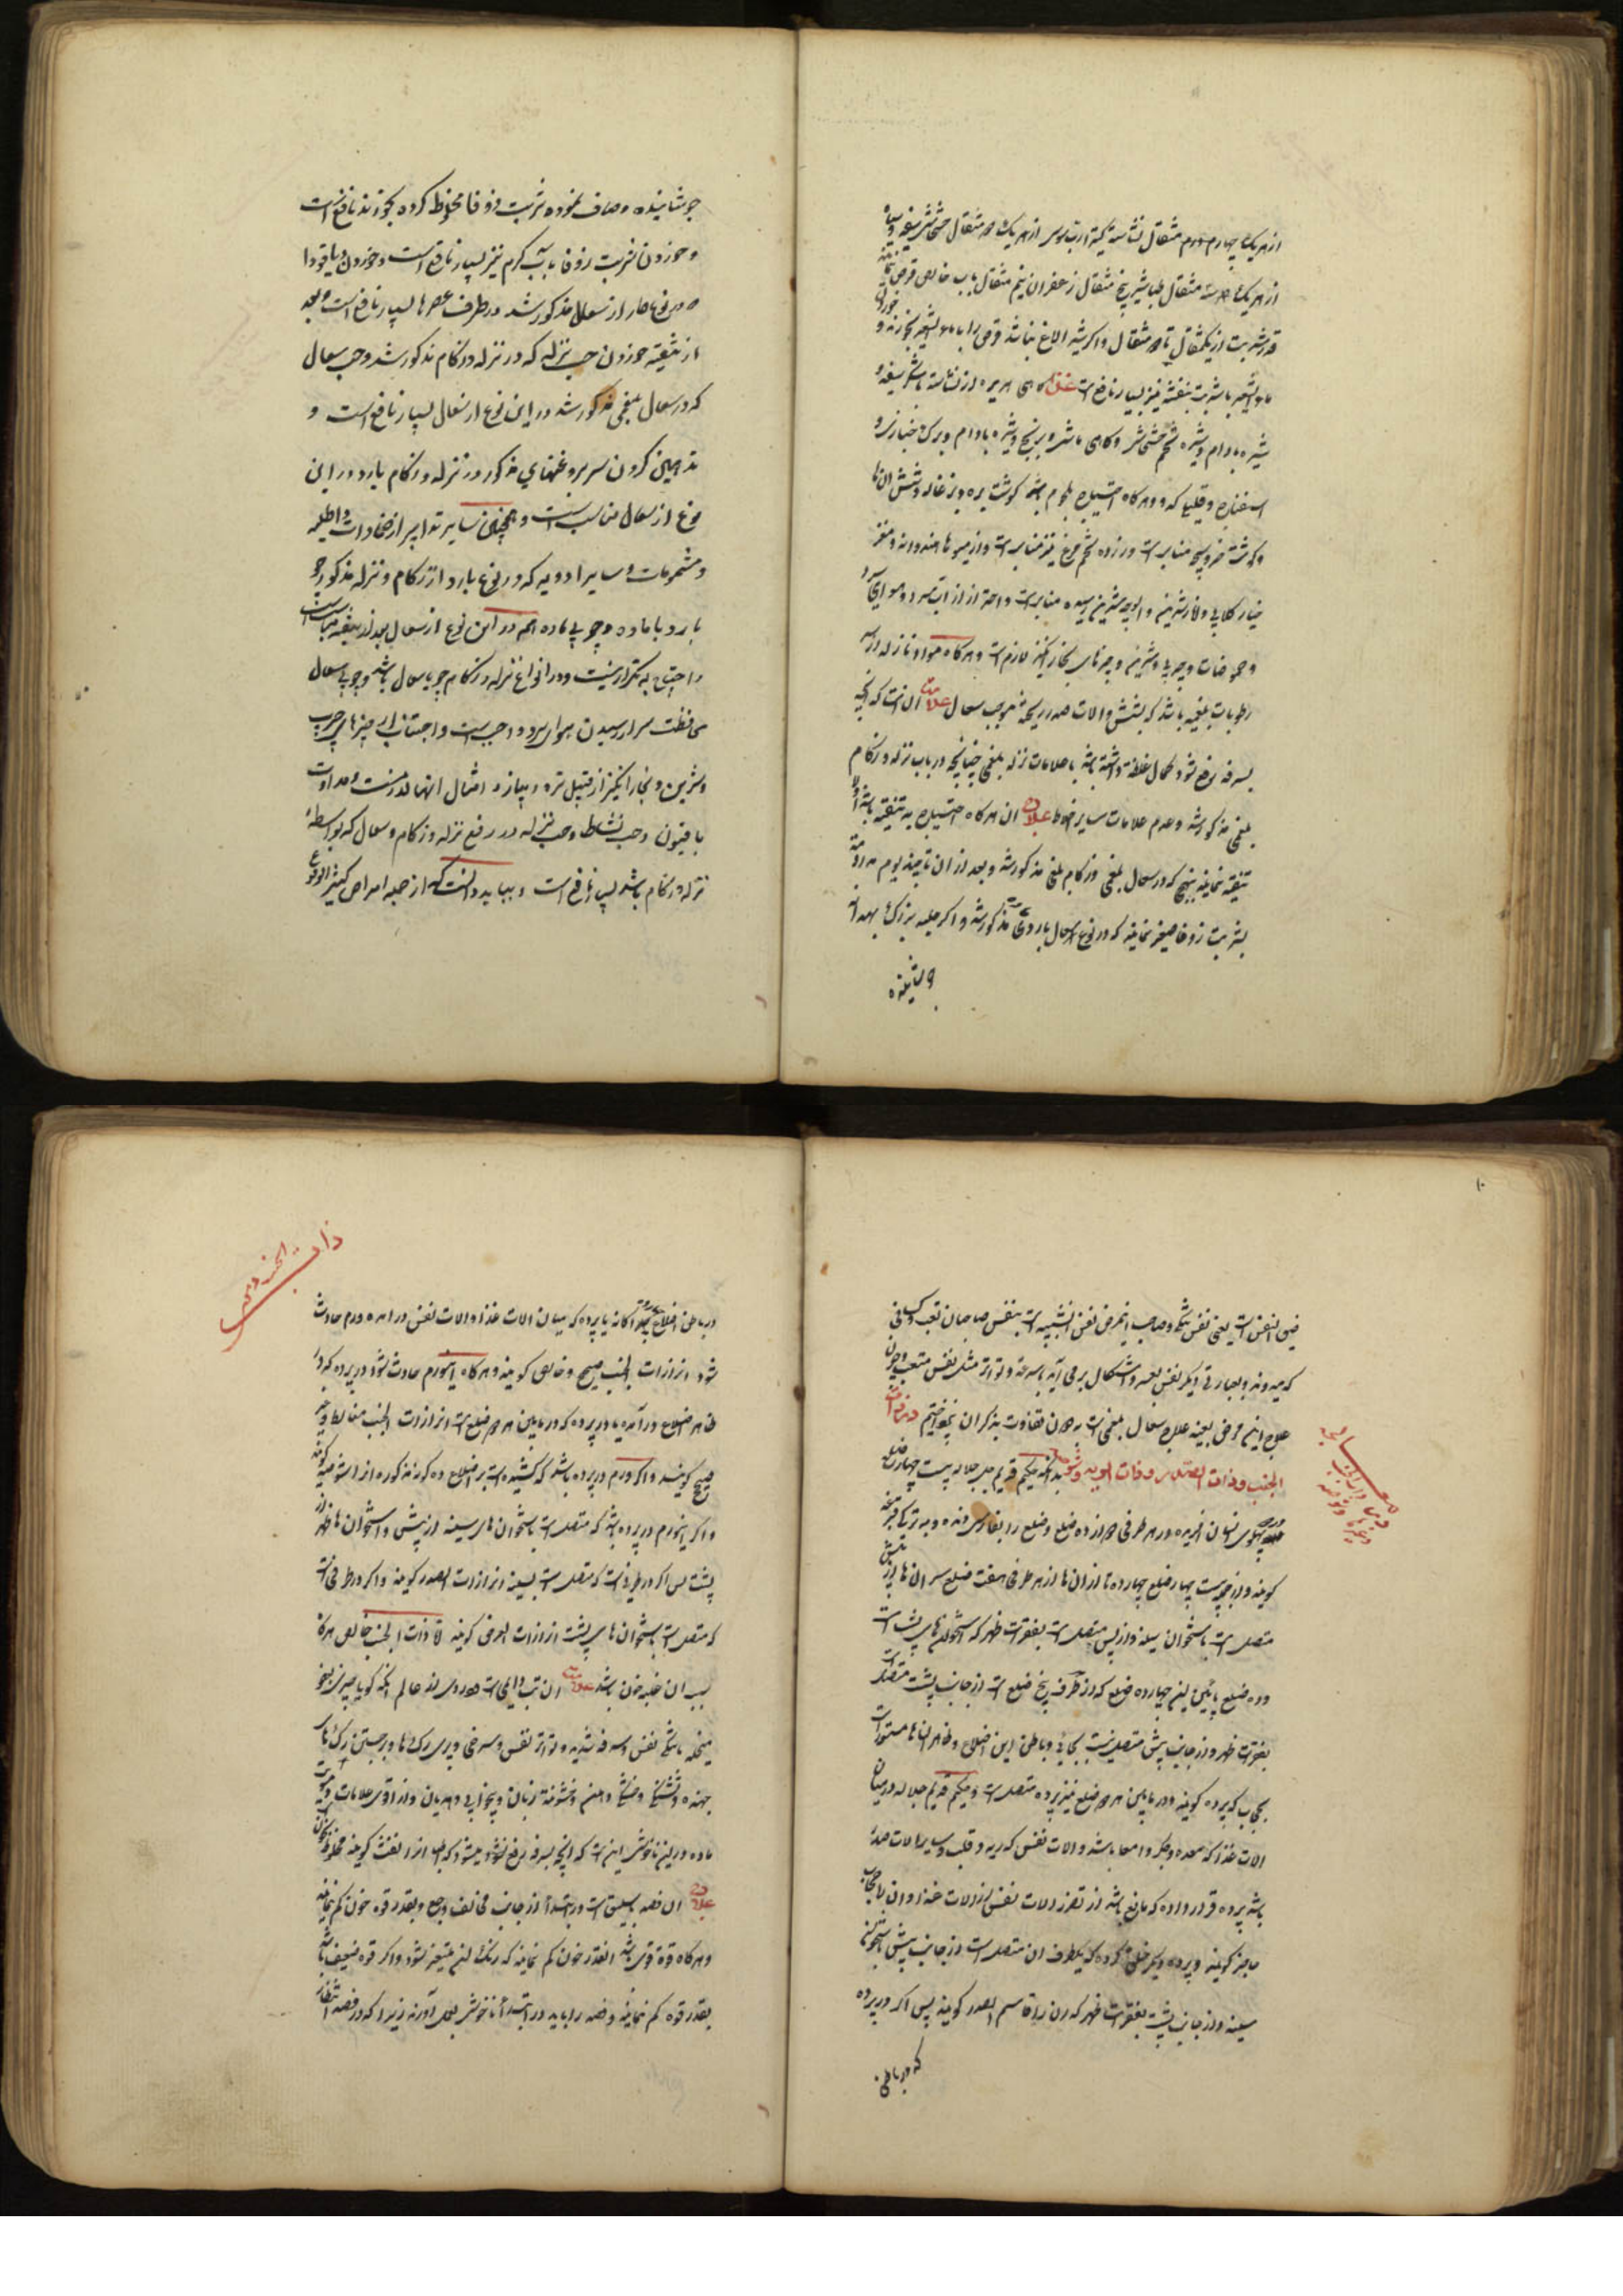 از هر یک چهار درم مثقال نشاسته کتیرا رب سوس از هر یک دو مثقال خشخاش سفید و سیاه
از هر یک سه مثقال طباشیر پنج مثقال زعفران نیم مثقال باب خالص قرص
قدر شربت از یکمثقال تا دو مثقال و اگر شیر الاغ نباشد قرص را با ماء الشعیر بخورند و
ماء الشعیر با شربت بنفشه نیز بسیار نافع است غذا کاهی هریره از نشاسته با شکر سفید و
شیره بادام و شیره تخم خشخاش و کاهی ماش و برنج و شیره بادام و برک خبازی و
اسفناج و قلیه کدو و هرکاه احتیاج بلحوم افتد کوشت بره و بزغاله و شش انها
و کوشت خروس بچه مناسب است و زرده تخم مرغ نیز مناسب است و از میوها هندوانه و مغز
خیار کلابی و انار شیرین و الوچه شیرین رسیده مناسب است و احتراز از آب سرد و هوای
و حموضات و چربی و شیرینی و چیزهای بخار انکیز لازم است و هرکاه مواد نازله از
رطوبات بلغمیه باشد که بشش و الات صدر ریخته موجب سعال علامت ان انست که انچه
بسرفه دفع شود کمال غلظت داشته باشد با علامات نزله بلغمی چنانچه در باب نزله و زکام
بلغمی مذکور شد و عدم علامات سایر اخلاط علاج ان هرکاه احتیاج به تنقیه باشد اولا
تنقیه نمایند بنهج که در سعال بلغمی و زکام بلغمی مذکور شد و بعد از ان تا چند یوم مداومت
بشربت زوفا صغیر نمایند که در نوع سعال بارد مذکور شد و اکر حلبه بزرک بهدانه
جوشانیده
جوشانیده و صاف نموده شربت زوفا مخلوط کرده بخورند نافع است
و خوردن شربت زوفا بآب کرم نیز بسیار نافع است و خوردن دیاقودا
در نوع حار از سعال مذکور شد در طرف عصرها بسیار نافع است و بعد
از تنقیه خوردن حب نزله که در نزله و زکام مذکور شد و حب سعال
که در سعال بلغمی مذکور شد در این نوع از سعال بسیار نافع است و
تدهین کردن سر بروغنهای مذکور در نزله و زکام بارد در این
نوع از سعال مناسب است و همچنین سایر تدابیر از ضمادات و اطلیه
و مشمومات و سایر ادویه که در نوع بارد از زکام و نزله مذکور
بارد با ماده و چه بی ماده همه در این نوع از سعال بعد از تنقیه مناسب است
احتیاج به تکرار نیست و در انواع نزله و زکام چه با سعال باشد و چه بی سعال
محافظت سر از رسیدن هوای سرد واجب است و اجتناب از چیزهای چرب
و شیرین و بخار انکیز از قبیل تره و پیاز و امثال انها لازمست و مداومت
بافیون و حب نشاط و حب نزله در رفع نزله و زکام و سعال که بواسطۀ
نزله و زکام باشد بس نافع است و بباید دانست که از جمله امراض کثیر الوقوع
ضیق النفس است یعنی نفس تنکی و صاحب اینمرض نفس او شبیه است بنفس صاحبان تعب و کسانی
که میدوند و بعبارتی دیکر نفس بعسر و اشکال برمی آید با سرعت و تواتر مثل نفس متعب و چون
علاج اینمرض بعینه علاج سعال بلغمی است بدون تفاوت بذکر ان نپرداختیم در ذات
الجنب و ذات الصدر و ذات الریه و شوصه بدانکه حکیم قدیم جل جلاله بیست چهار ضلع
در پهلوی انسان افریده در هر طرفی دوازده ضلع و ضلع را بفارسی دنده و بترکی قبرغه
کویند و از جمله بیست چهار ضلع چهارده تا از انها از هر طرفی هفت ضلع سر انها از پیش
متصل است باستخوان سینه و از پس متصل است بفقرات ظهر که استخوانهای پشت است
و ده ضلع پائین این چهارده ضلع که از هر طرف پنج ضلع است از جانب پشت متصل است
بفقرات ظهر و از جانب پیش متصل نیست بجائی و باطن این اضلاع و ظاهر انها مستور است
بحجاب که پرده کویند و در مابین هر دو ضلع نیز پرده متصل است و حکیم قدیم جل جلاله در میان
الات غذا که معده و جکر و امعا باشد و الات نفس که ریه و قلب و سایر الات صدر
باشد پرده قرار داده که مانع باشد از تضرر الات نفس از الات غذا و ان را حجاب
حاجز کویند و پرده دیکر خلق کرده که یکطرف ان متصل است از جانب پیش باستخوان
سینه و از جانب پشت بفقرات ظهر که ان را قاسم الصدر کویند پس اکر در پرده
که در باطن
ذات الجنب
در باطن اضلاع یا پرده که میان الات غذا و الات نفس در امده ورم حادث
شود انرا ذات الجنب صحیح و خالص کویند و هرکاه اینورم حادث شود در پرده که در
ظاهر اضلاع در آمده یا در پرده که در مابین هر دو ضلع است انرا ذات الجنب مغالط و غیر
صحیح کویند و اکر ورم در پرده باشد که کشیده است بر اضلاع ده کانه مذکوره انرا شوصه کویند
و اکر اینورم در پرده باشد که متصل است باستخوان های سینه از پیش و استخوان ها از
پشت پس اکر در طرفی است که متصل است بسینه انرا ذات الصدر کویند و اکر در طرفی است
که متصل است باستخوان های پشت انرا ذات العرض کویند اما ذات الجنب خالص هرکاه
سبب ان غلبه خون باشد علامت ان تب دایمی است
با تنکی نفس و سرفه شدید و تواتر نفس و سرخی و پری رکها و برجستن رکهای
جهنده و تشنکی و خشکی دهن و خشونت زبان و بیخوابی و هذیان و از اقوی علامات
ماده در این ناخوشی اینست که انچه بسرفه دفع شود
علاج ان فصد باسلیق است در ابتدا از جانب مخالف وجع و بقدر قوه خون کم نمایند
و هرکاه قوه قوی باشد انقدر خون کم نمایند که رنک ان متغیر شود و اکر قوه ضعیف باشد
بقدر قوه کم نمایند و فصد را باید در ابتدأ ناخوشی بعمل آورند زیرا که در فصد